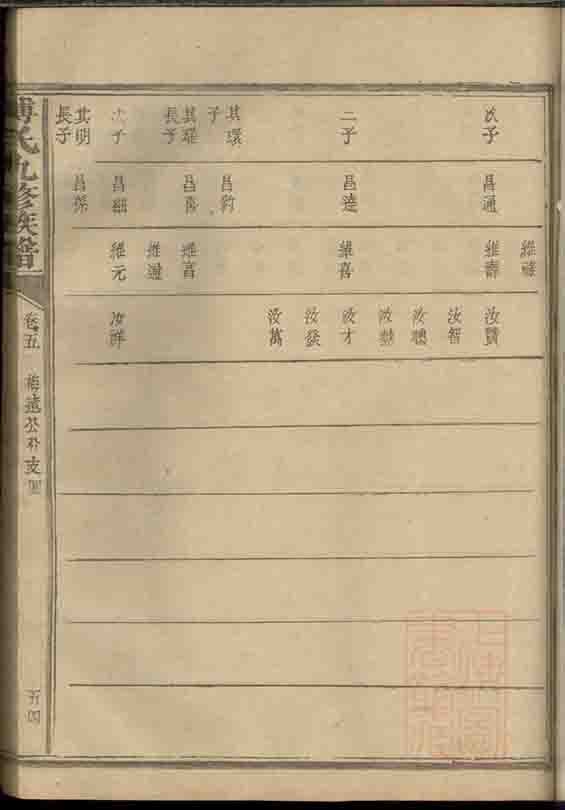 次子
二子
其環
子
其璀
長子
次子
其明
長子
昌通
昌達
昌鈞
昌喬
昌
昌榮
維祿
維壽
維喜
維富
維迪
維元
汝賢
汝智
汝聰
汝
汝才
汝發
汝萬
汝祥
氏九修族譜
卷五
梅遠公朴支
五四